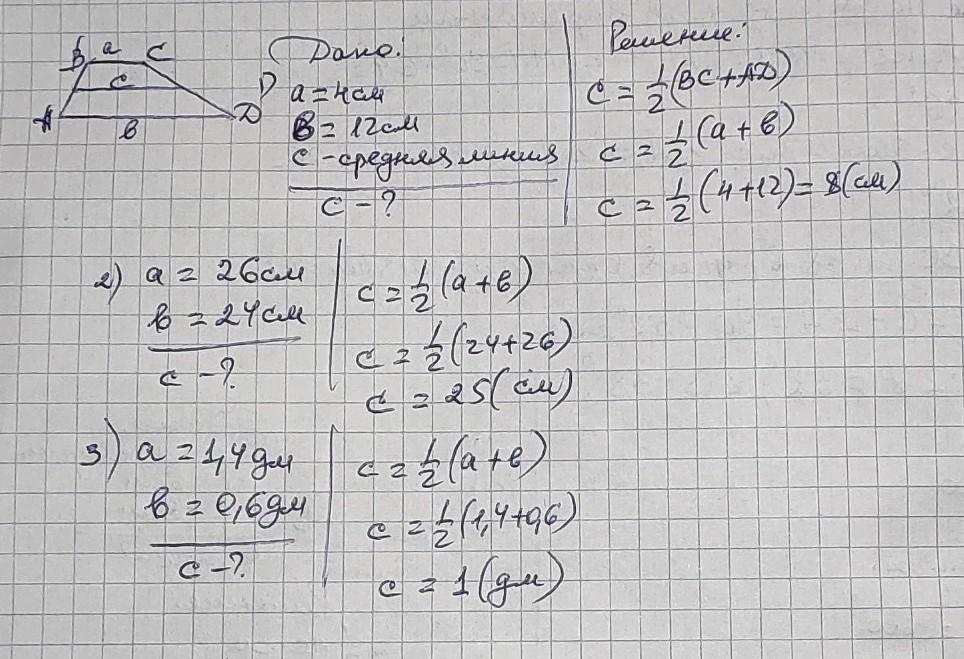 B a C
c
A в D
Дано:
а = 4 см
в = 12 см
с - средняя линия
с - ?
Решение:
с = 1/2 (BC + AD)
с = 1/2 (а + в)
с = 1/2 (4 + 12) = 8 (см)
2) а = 26 см
в = 24 см
с - ?
с = 1/2 (а + в)
с = 1/2 (24 + 26)
с = 25 (см)
3) а = 1,4 дм
в = 0,6 дм
с - ?
с = 1/2 (а + в)
с = 1/2 (1,4 + 0,6)
с = 1 (дм)